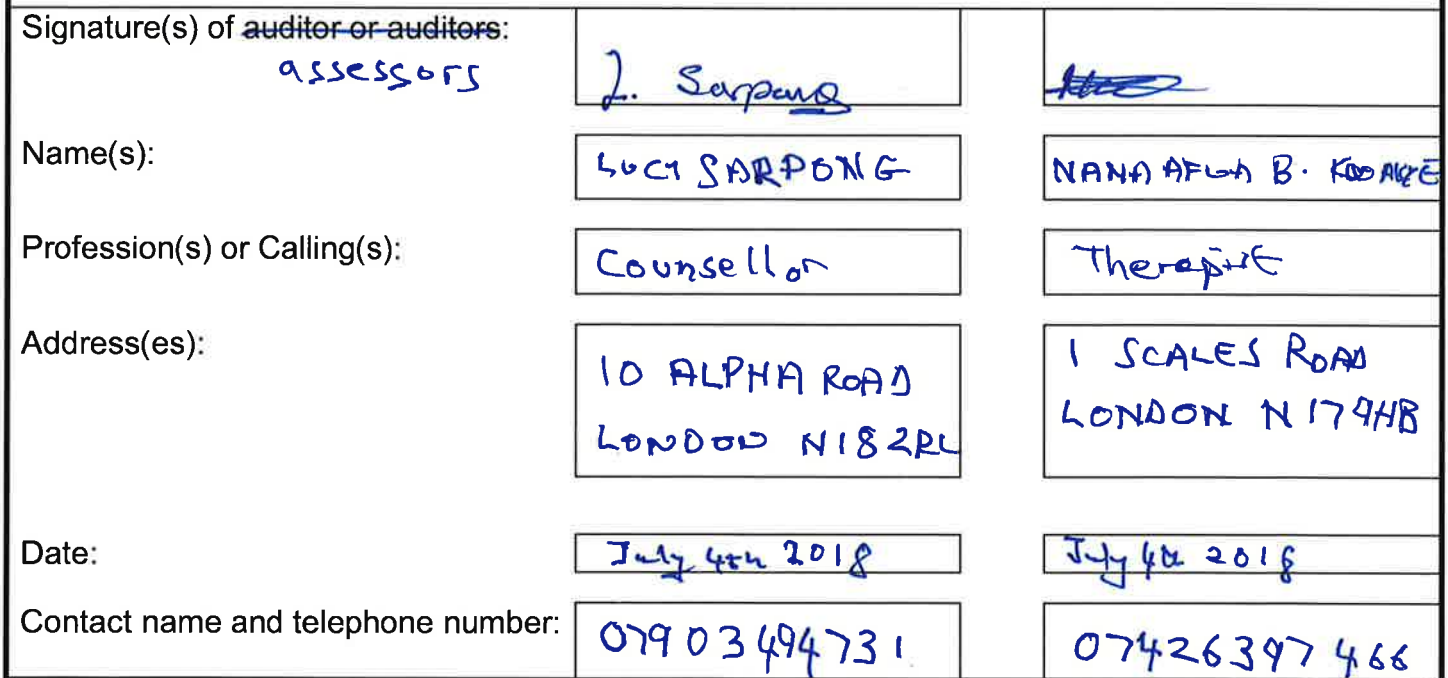 Signature(s) of auditor or auditors:
assessors
L. Sarpong
Name(s):
LUCY SARPONG
NANA AFUA B.
Profession(s) or Calling(s):
Counsellor
Therapist
Address(es):
10 ALPHA ROAD
LONDON N18 2RL
1 SCALES ROAD
LONDON N17 9HB
Date:
July 4th 2018
July 4th 2018
Contact name and telephone number:
07903494731
07426397466